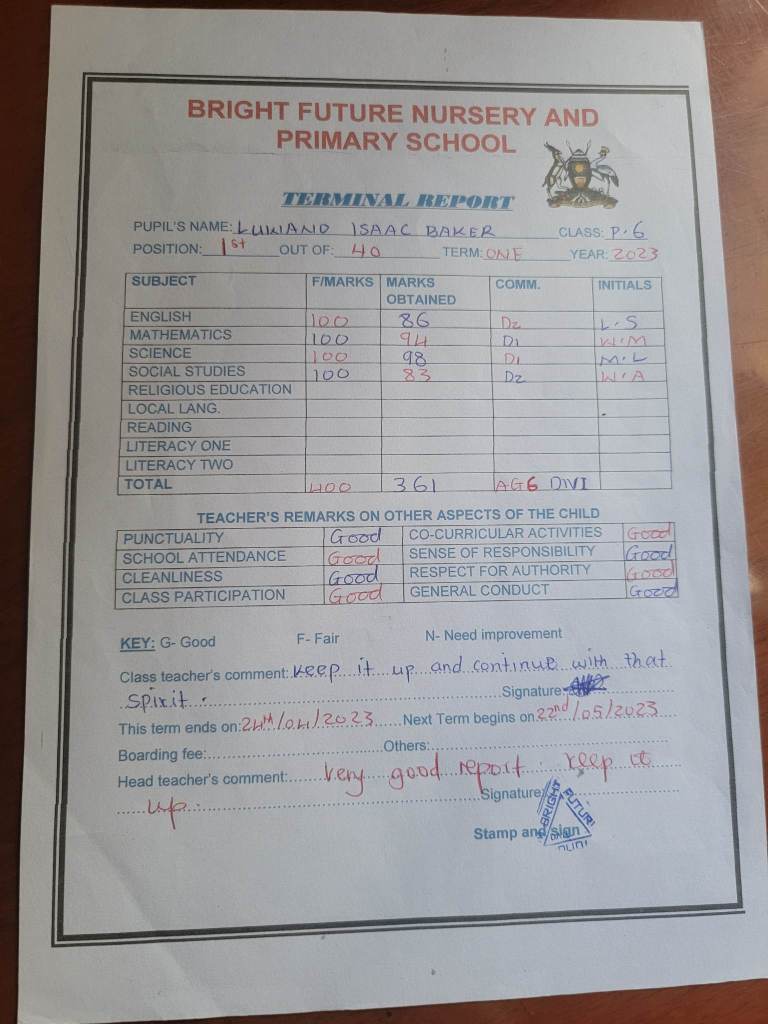 BRIGHT FUTURE NURSERY AND
PRIMARY SCHOOL
TERMINAL REPORT
PUPIL'S NAME: LUWANO ISAAC BAKER CLASS: P.6
POSITION: 1st OUT OF: 40 TERM: ONE YEAR: 2023
SUBJECT F/MARKS MARKS OBTAINED COMM. INITIALS
ENGLISH 100 86 D2 L.S
MATHEMATICS 100 94 D1 W.M
SCIENCE 100 98 D1 M.L
SOCIAL STUDIES 100 83 D2 W.A
RELIGIOUS EDUCATION
LOCAL LANG.
READING
LITERACY ONE
LITERACY TWO
TOTAL 400 361 AG6 DIV I
TEACHER'S REMARKS ON OTHER ASPECTS OF THE CHILD
PUNCTUALITY Good CO-CURRICULAR ACTIVITIES Good
SCHOOL ATTENDANCE Good SENSE OF RESPONSIBILITY Good
CLEANLINESS Good RESPECT FOR AUTHORITY Good
CLASS PARTICIPATION Good GENERAL CONDUCT Good
KEY: G- Good F- Fair N- Need improvement
Class teacher's comment: keep it up and continue with that
spirit. Signature:
This term ends on: 24th/04/2023 Next Term begins on 22nd/05/2023
Boarding fee: Others:
Head teacher's comment: Very good report. keep it
up. Signature:
BRIGHT FUTUR
Stamp and sign